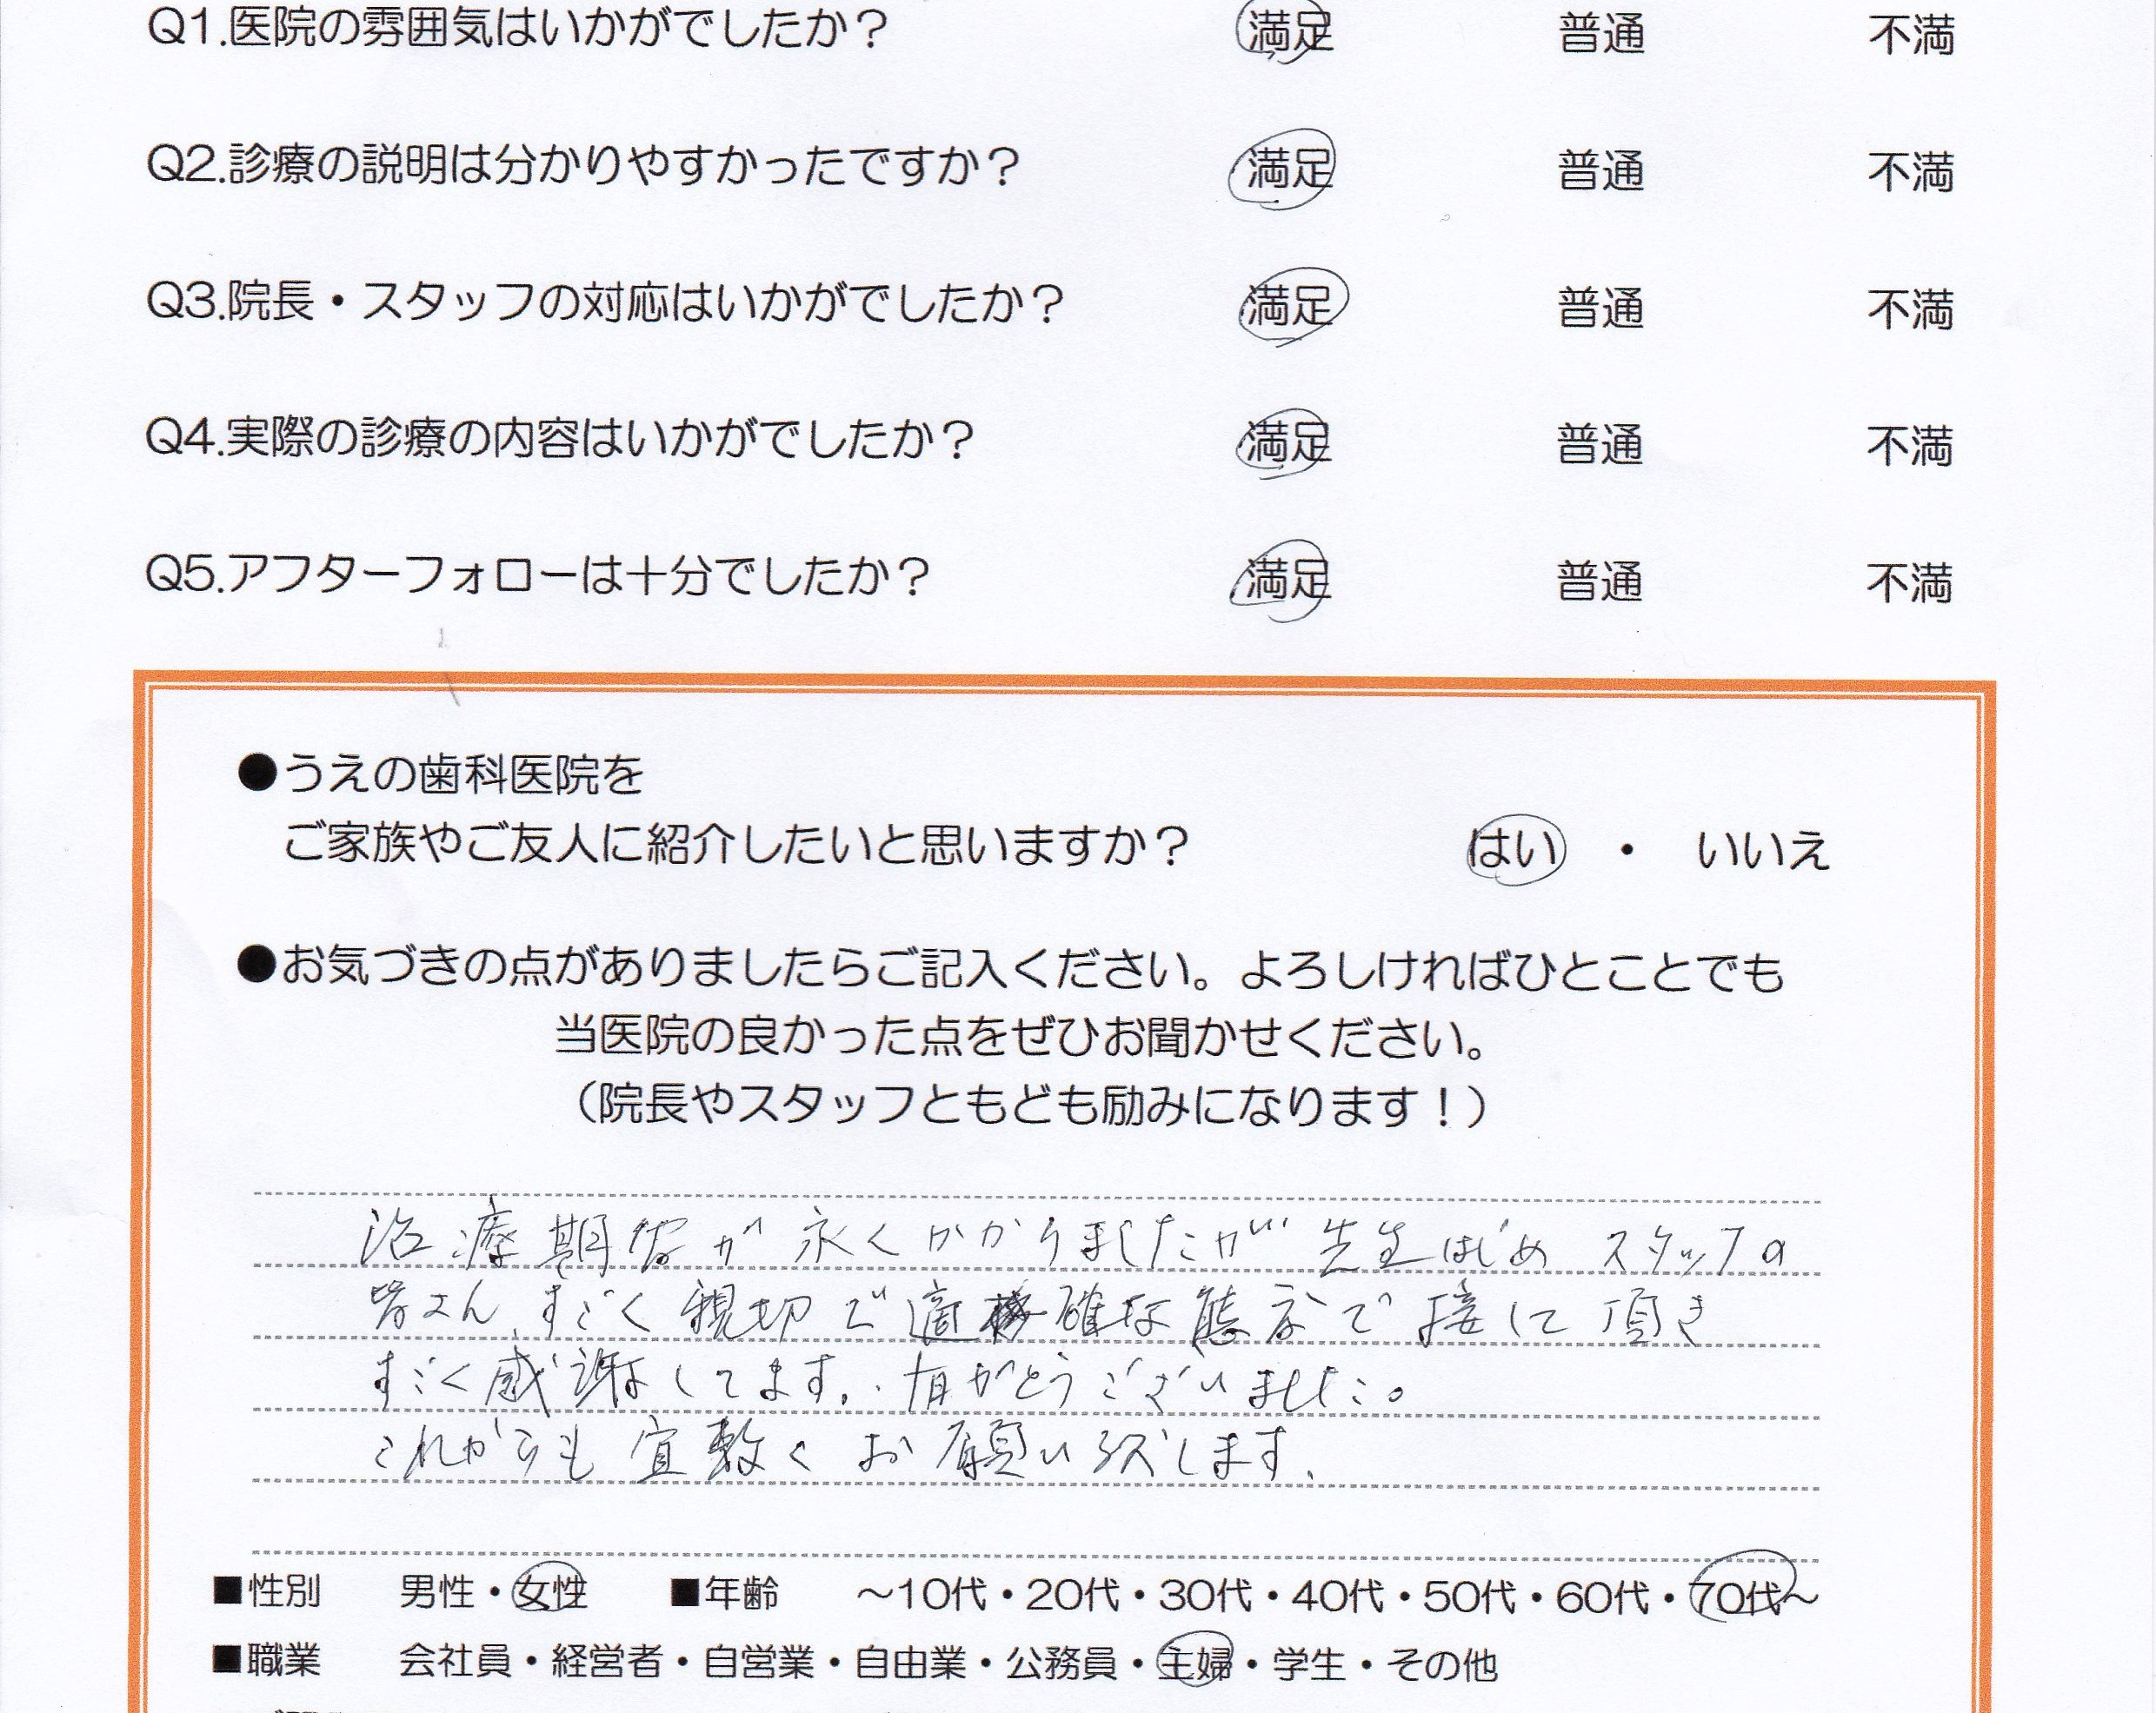 Q1.医院の雰囲気はいかがでしたか？ 満足 普通 不満
Q2.診療の説明は分かりやすかったですか？ 満足 普通 不満
Q3.院長・スタッフの対応はいかがでしたか？ 満足 普通 不満
Q4.実際の診療の内容はいかがでしたか？ 満足 普通 不満
Q5.アフターフォローは十分でしたか？ 満足 普通 不満
●うえの歯科医院を
ご家族やご友人に紹介したいと思いますか？ はい ・ いいえ
●お気づきの点がありましたらご記入ください。よろしければひとことでも
当医院の良かった点をぜひお聞かせください。
（院長やスタッフともども励みになります！）
治療期間が永くかかりましたが先生はじめスタッフの
皆さん、すごく親切で適確な態度で接して頂き
すごく感謝してます。有がとうございました。
これからも宜敷くお願い致します。
■性別 男性・女性 ■年齢 ～10代・20代・30代・40代・50代・60代・70代～
■職業 会社員・経営者・自営業・自由業・公務員・主婦・学生・その他